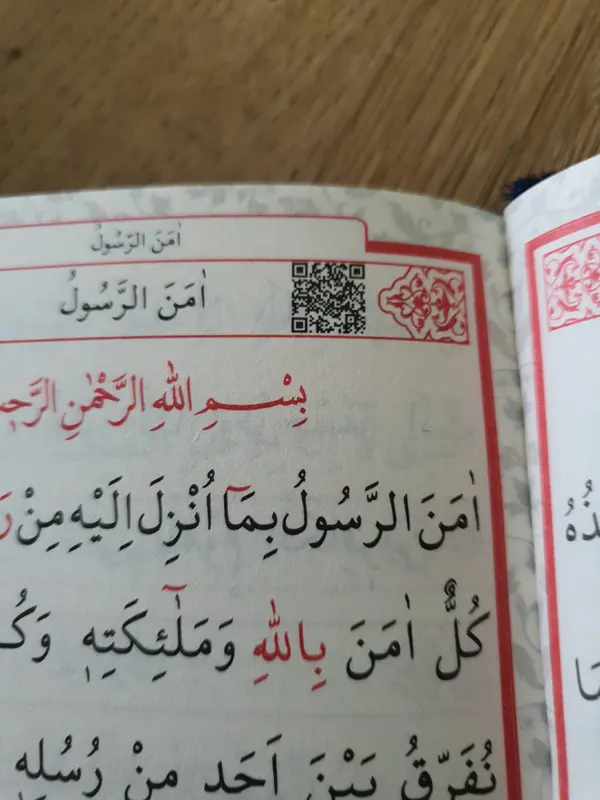 اٰمَنَ الرَّسُولُ
اٰمَنَ الرَّسُولُ
بِسْمِ اللّٰهِ الرَّحْمٰنِ
اٰمَنَ الرَّسُولُ بِمَٓا اُنْزِلَ اِلَيْهِ مِنْ
كُلٌّ اٰمَنَ بِاللّٰهِ وَمَلٰٓئِكَتِهٖ
نُفَرِّقُ بَيْنَ اَحَدٍ مِنْ رُسُلِهٖ